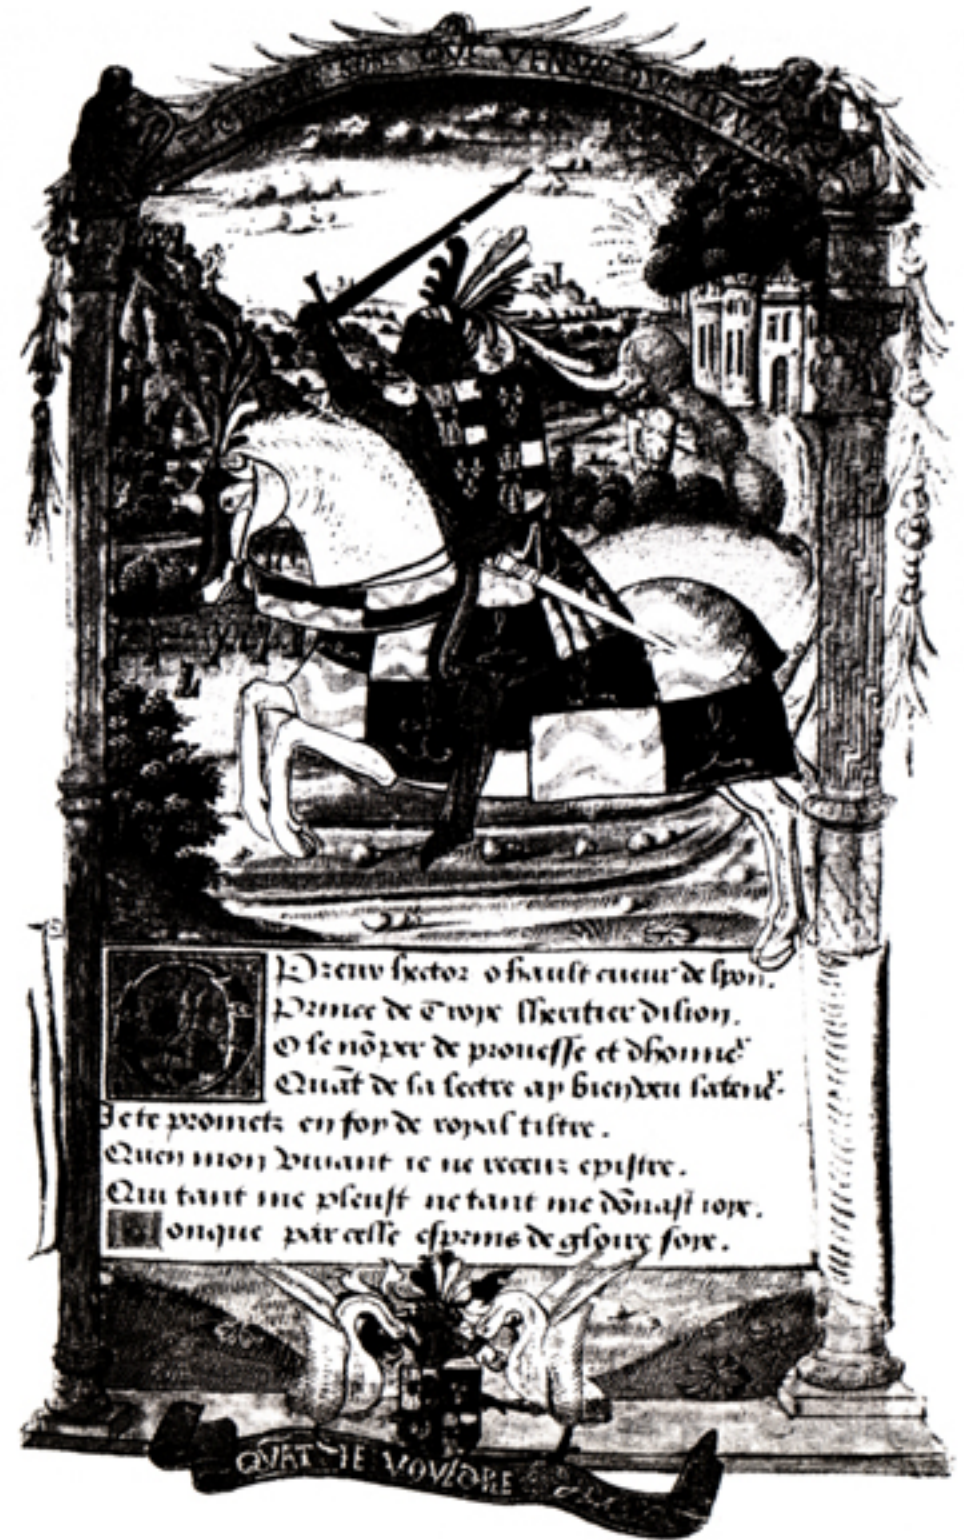 QVE
O Preux hector o hault cueur de lyon.
Prince de Troye lheritier dilion.
O le nõper de prouesse et dhonneʳ
Quãt de ta lectre ay bien veu la teneʳ.
Je te prometz en foy de royal tiltre.
Quen mon viuant ie ne receuz epistre.
Qui tant me pleust ne tant me dõnast ioye.
Donque par celle esprins de gloire soye.
QVAT IE VOVLDRE